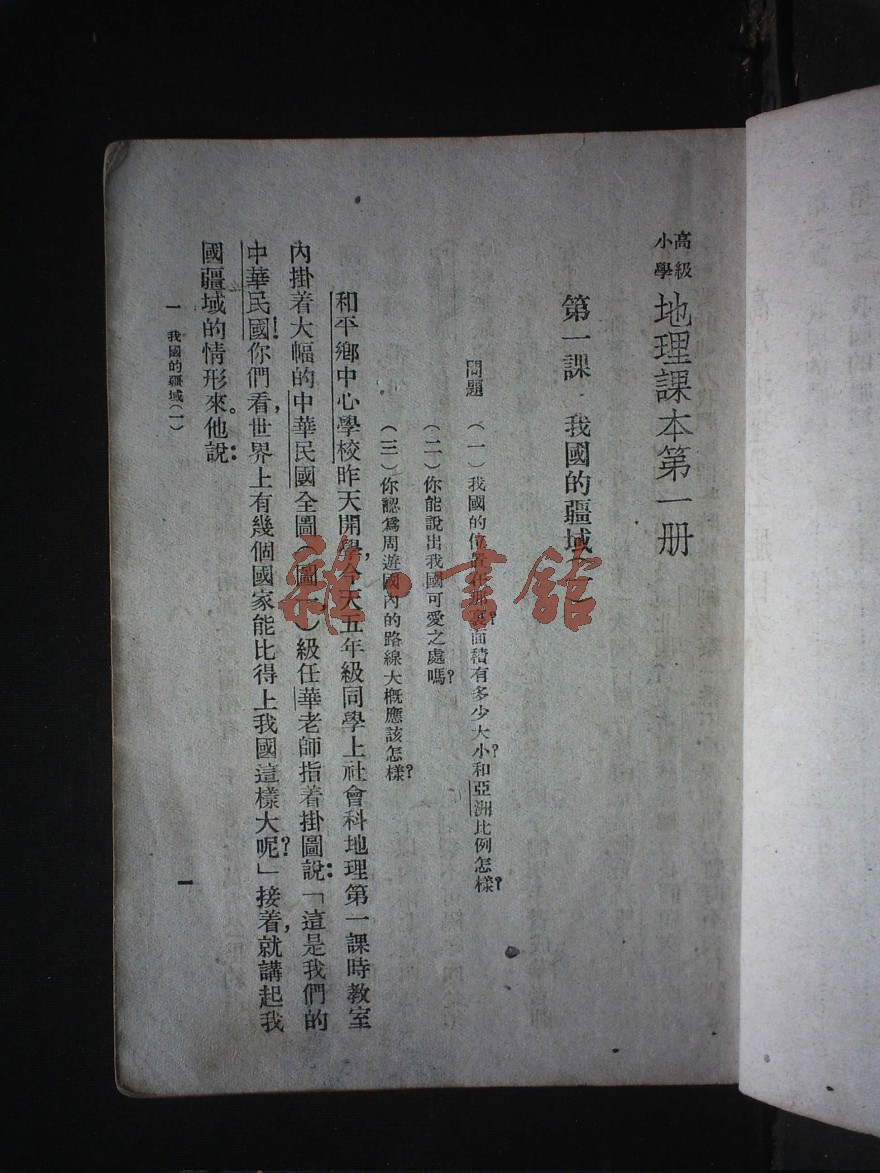 高級小學 地理課本第一册
第一課 我國的疆域（一）
問題 （一）我國的位置在那裏？面積有多少大小？和亞洲比例怎樣？
（二）你能說出我國可愛之處嗎？
（三）你認爲周遊國內的路線大概應該怎樣？
和平鄉中心學校昨天開學，今天五年級同學上社會科地理第一課時教室
內掛着大幅的中華民國全圖（圖一）級任華老師指着掛圖說：「這是我們的
中華民國！你們看，世界上有幾個國家能比得上我國這樣大呢？」接着，就講起我
國疆域的情形來。他說：
一 我國的疆域（一）
一
雜·書館